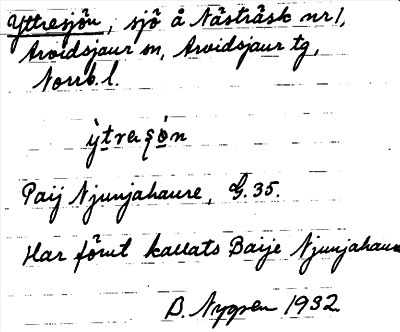 Yttresjön, sjö å Nästräsk nr 1,
Arvidsjaur sn, Arvidsjaur tg,
Norrb. l.
Paij Njunjahaure, G. 35.
Har förut kallats Baije Njunjahaure
B. Nygren 1932